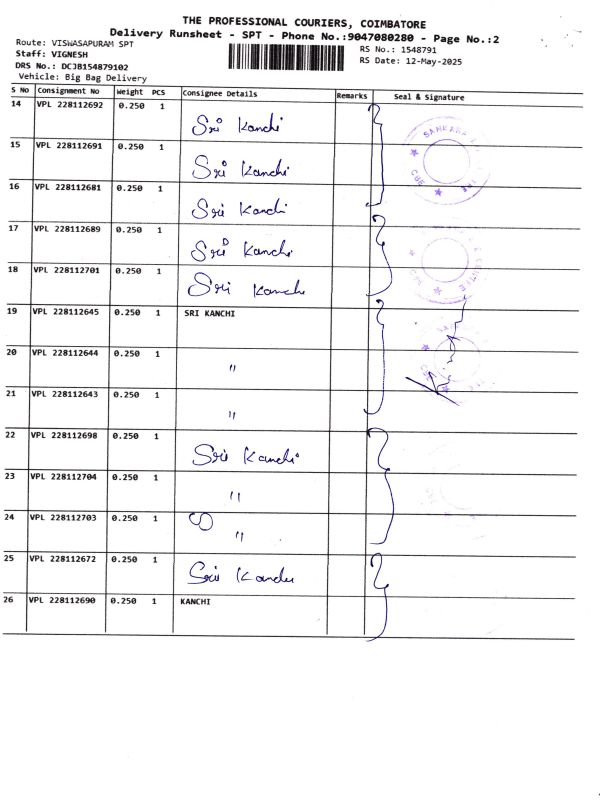 THE PROFESSIONAL COURIERS, COIMBATORE
Delivery Runsheet - SPT - Phone No.:9047080280 - Page No.:2
Route: VISWASAPURAM SPT
RS No.: 1548791
Staff: VIGNESH
RS Date: 12-May-2025
DRS No.: DCJB154879102
Vehicle: Big Bag Delivery
S No Consignment No Weight PCS Consignee Details Remarks Seal & Signature
14 VPL 228112692 0.250 1 Sri Kanchi
15 VPL 228112691 0.250 1 Sri Kanchi
16 VPL 228112681 0.250 1 Sri Kanchi
17 VPL 228112689 0.250 1 Sri Kanchi
18 VPL 228112701 0.250 1 Sri Kanchi
19 VPL 228112645 0.250 1 SRI KANCHI
20 VPL 228112644 0.250 1 "
21 VPL 228112643 0.250 1 "
22 VPL 228112698 0.250 1 Sri Kanchi
23 VPL 228112704 0.250 1 "
24 VPL 228112703 0.250 1 "
25 VPL 228112672 0.250 1 Sri Kanchi
26 VPL 228112690 0.250 1 KANCHI